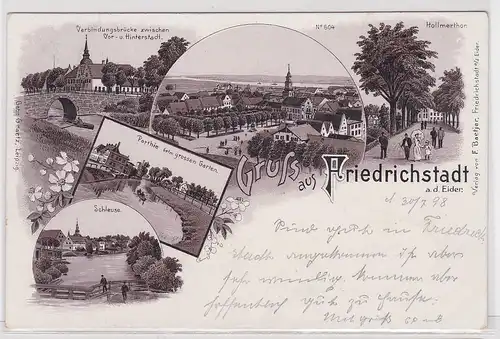 Verbindungsbrücke zwischen
Vor- u. Hinterstadt.
No 604
Hollmerthor.
Parthie beim grossen Garten.
Schleuse.
Gruss aus Friedrichstadt
a. d. Eider.
Verlag von F. Boetjer, Friedrichstadt a/Eider
d 30/7 98
Sind gut in Friedrich-
stadt angekommen ist aber
sehr windig, kommen aber
hoffentlich gut zu Hause.
Mit Gruß